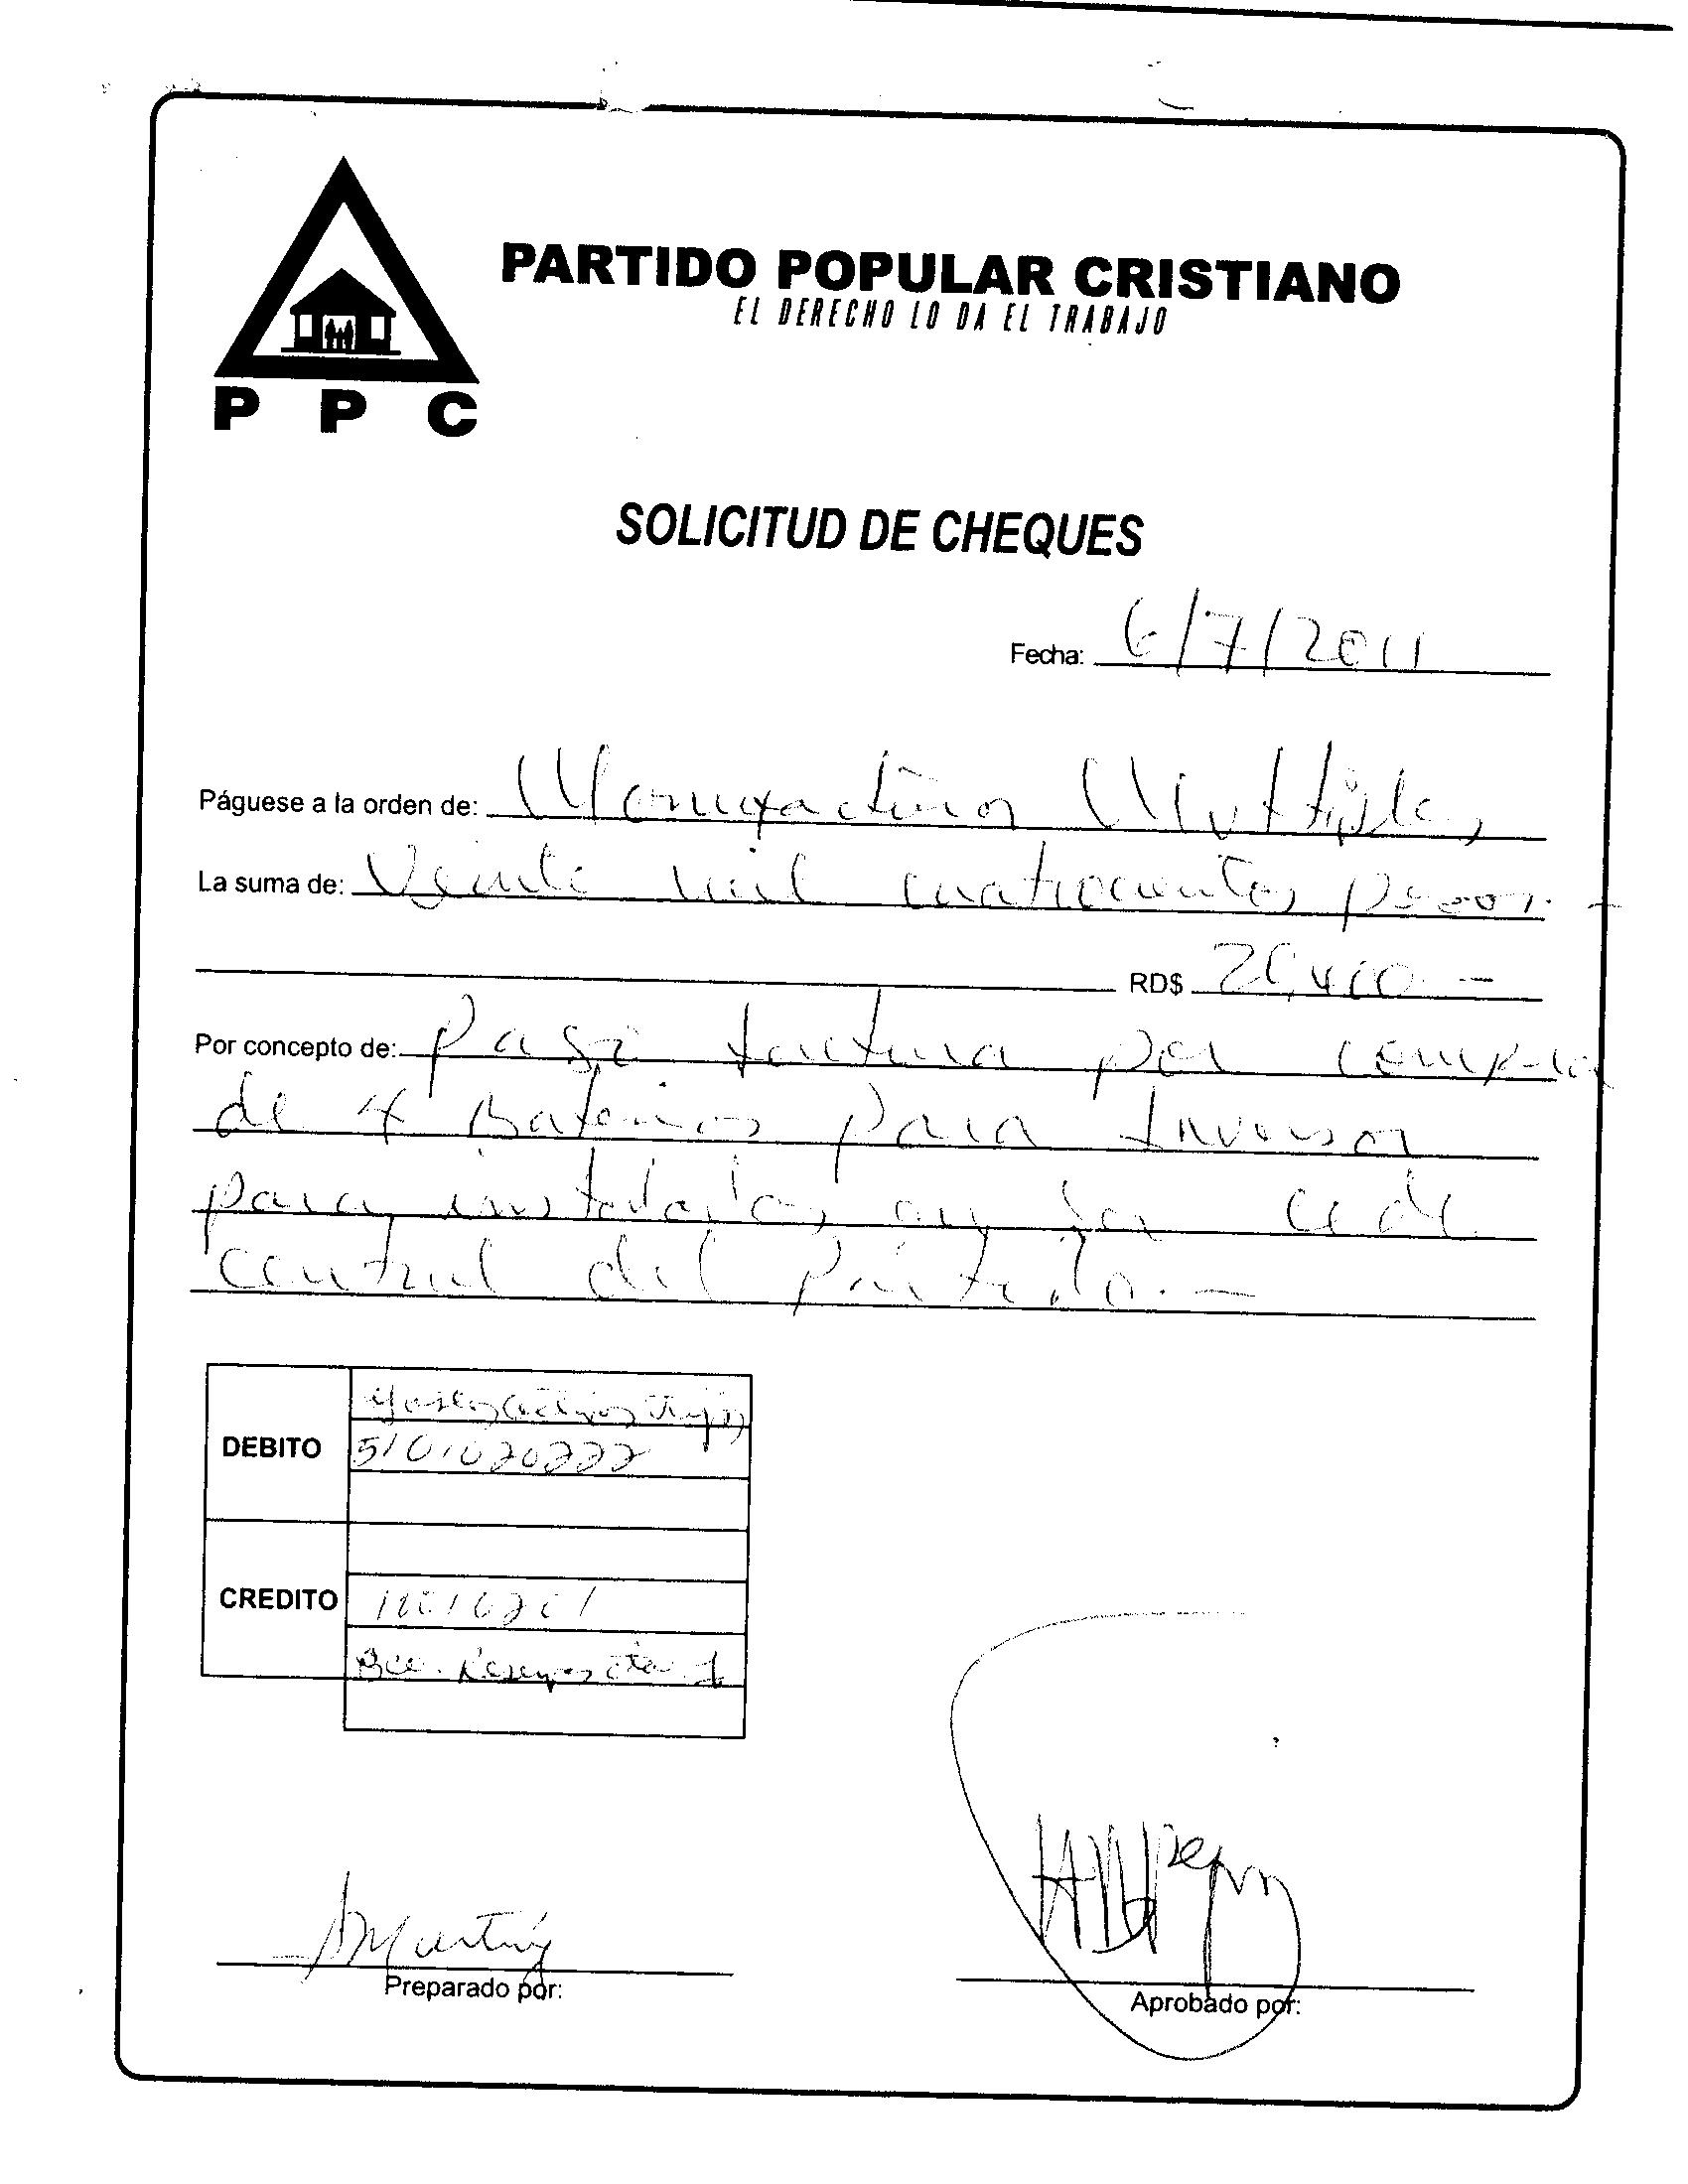 PARTIDO POPULAR CRISTIANO
EL DERECHO LO DA EL TRABAJO
P P C
SOLICITUD DE CHEQUES
Fecha: 6/7/2011
Páguese a la orden de: Multiples
La suma de: Veinte mil cuatrocientos pesos. -
RD$ 20,400.-
Por concepto de: Pago factura por compra
de 4 Baterias para Inversor
para instalarlas en la cede
central del Partido.-
DEBITO
5101020222
CREDITO
Bco. Reservas Cta. 1
Preparado por:
Aprobado por: